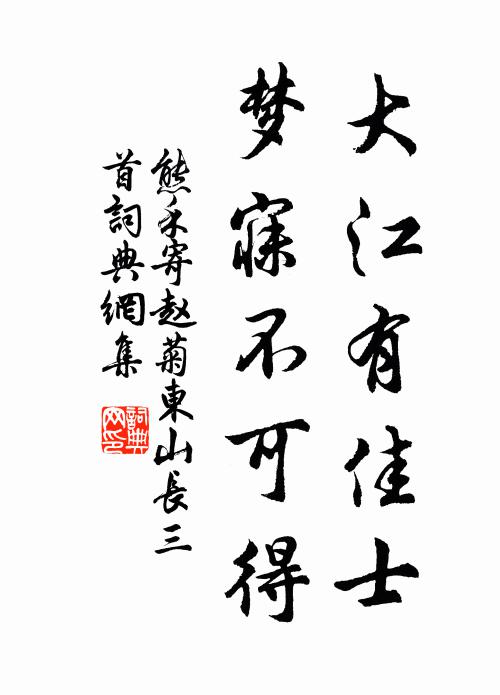 大江有佳士
梦寐不可得
熊禾寄赵菊東山長三
首詞典網集
詞典网印